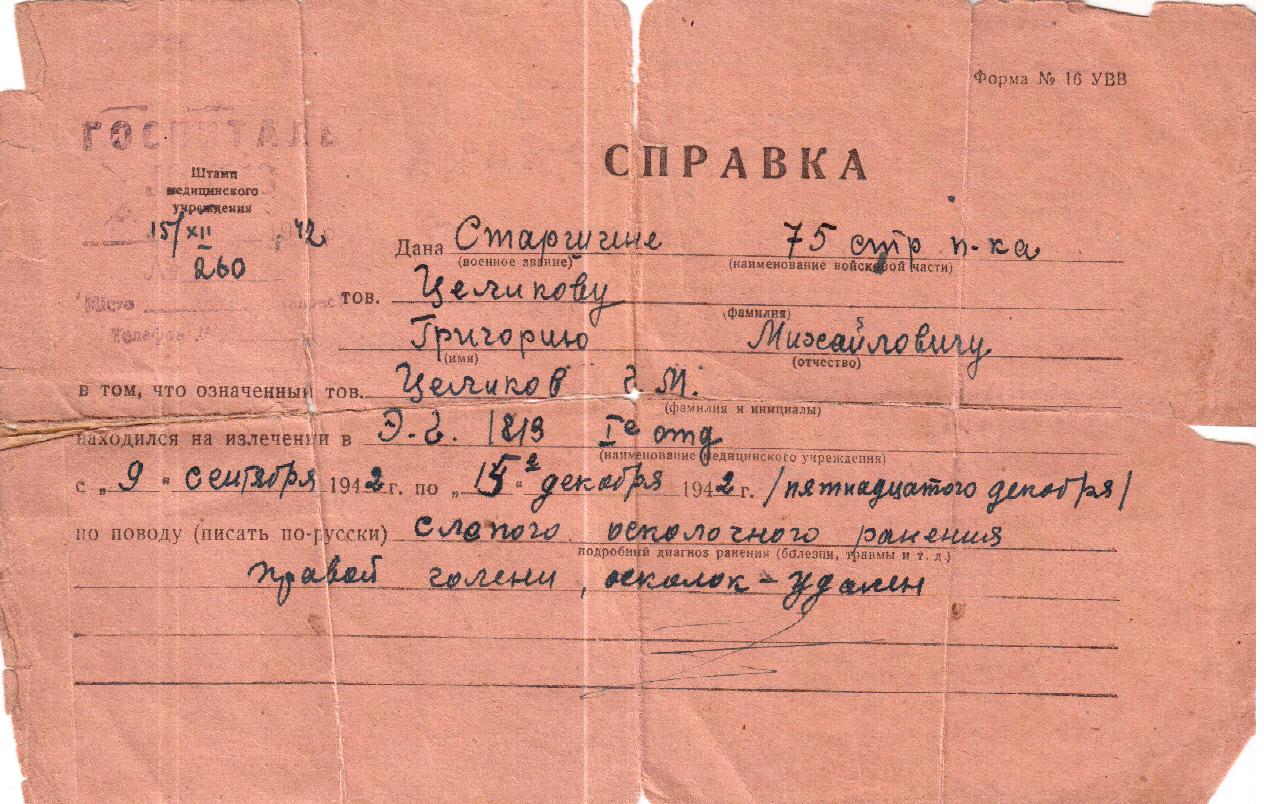 Форма № 16 УВВ
ГОСПИТАЛЬ
СПРАВКА
Штамп
медицинского
учреждения
15/XII 42
260
Дана Старшине 75 стр п-ка
(военное звание) (наименование войсковой части)
тов. Целикову
(фамилия)
Григорию Михайловичу
(имя) (отчество)
в том, что означенный тов. Целиков Г. М.
(фамилия и инициалы)
находился на излечении в Э.Г. 1819 Iе отд
(наименование медицинского учреждения)
с „ 9 “ сентября 1942 г. по „ 15 “ декабря 1942 г. /пятнадцатого декабря/
по поводу (писать по-русски) слепого осколочного ранения
подробный диагноз ранения (болезни, травмы и т. д.)
правой голени, осколок – удален